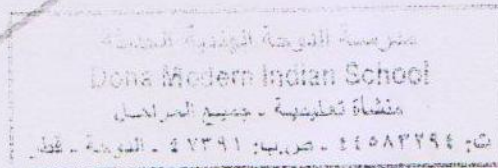 مدرسة الدوحة الهندية الحديثة
Doha Modern Indian School
منشأة تعليمية - جميع المراحل
ت: ٤٤٥٨٣٢٩٤ - ص.ب: ٤٧٣٩١ - الدوحة - قطر